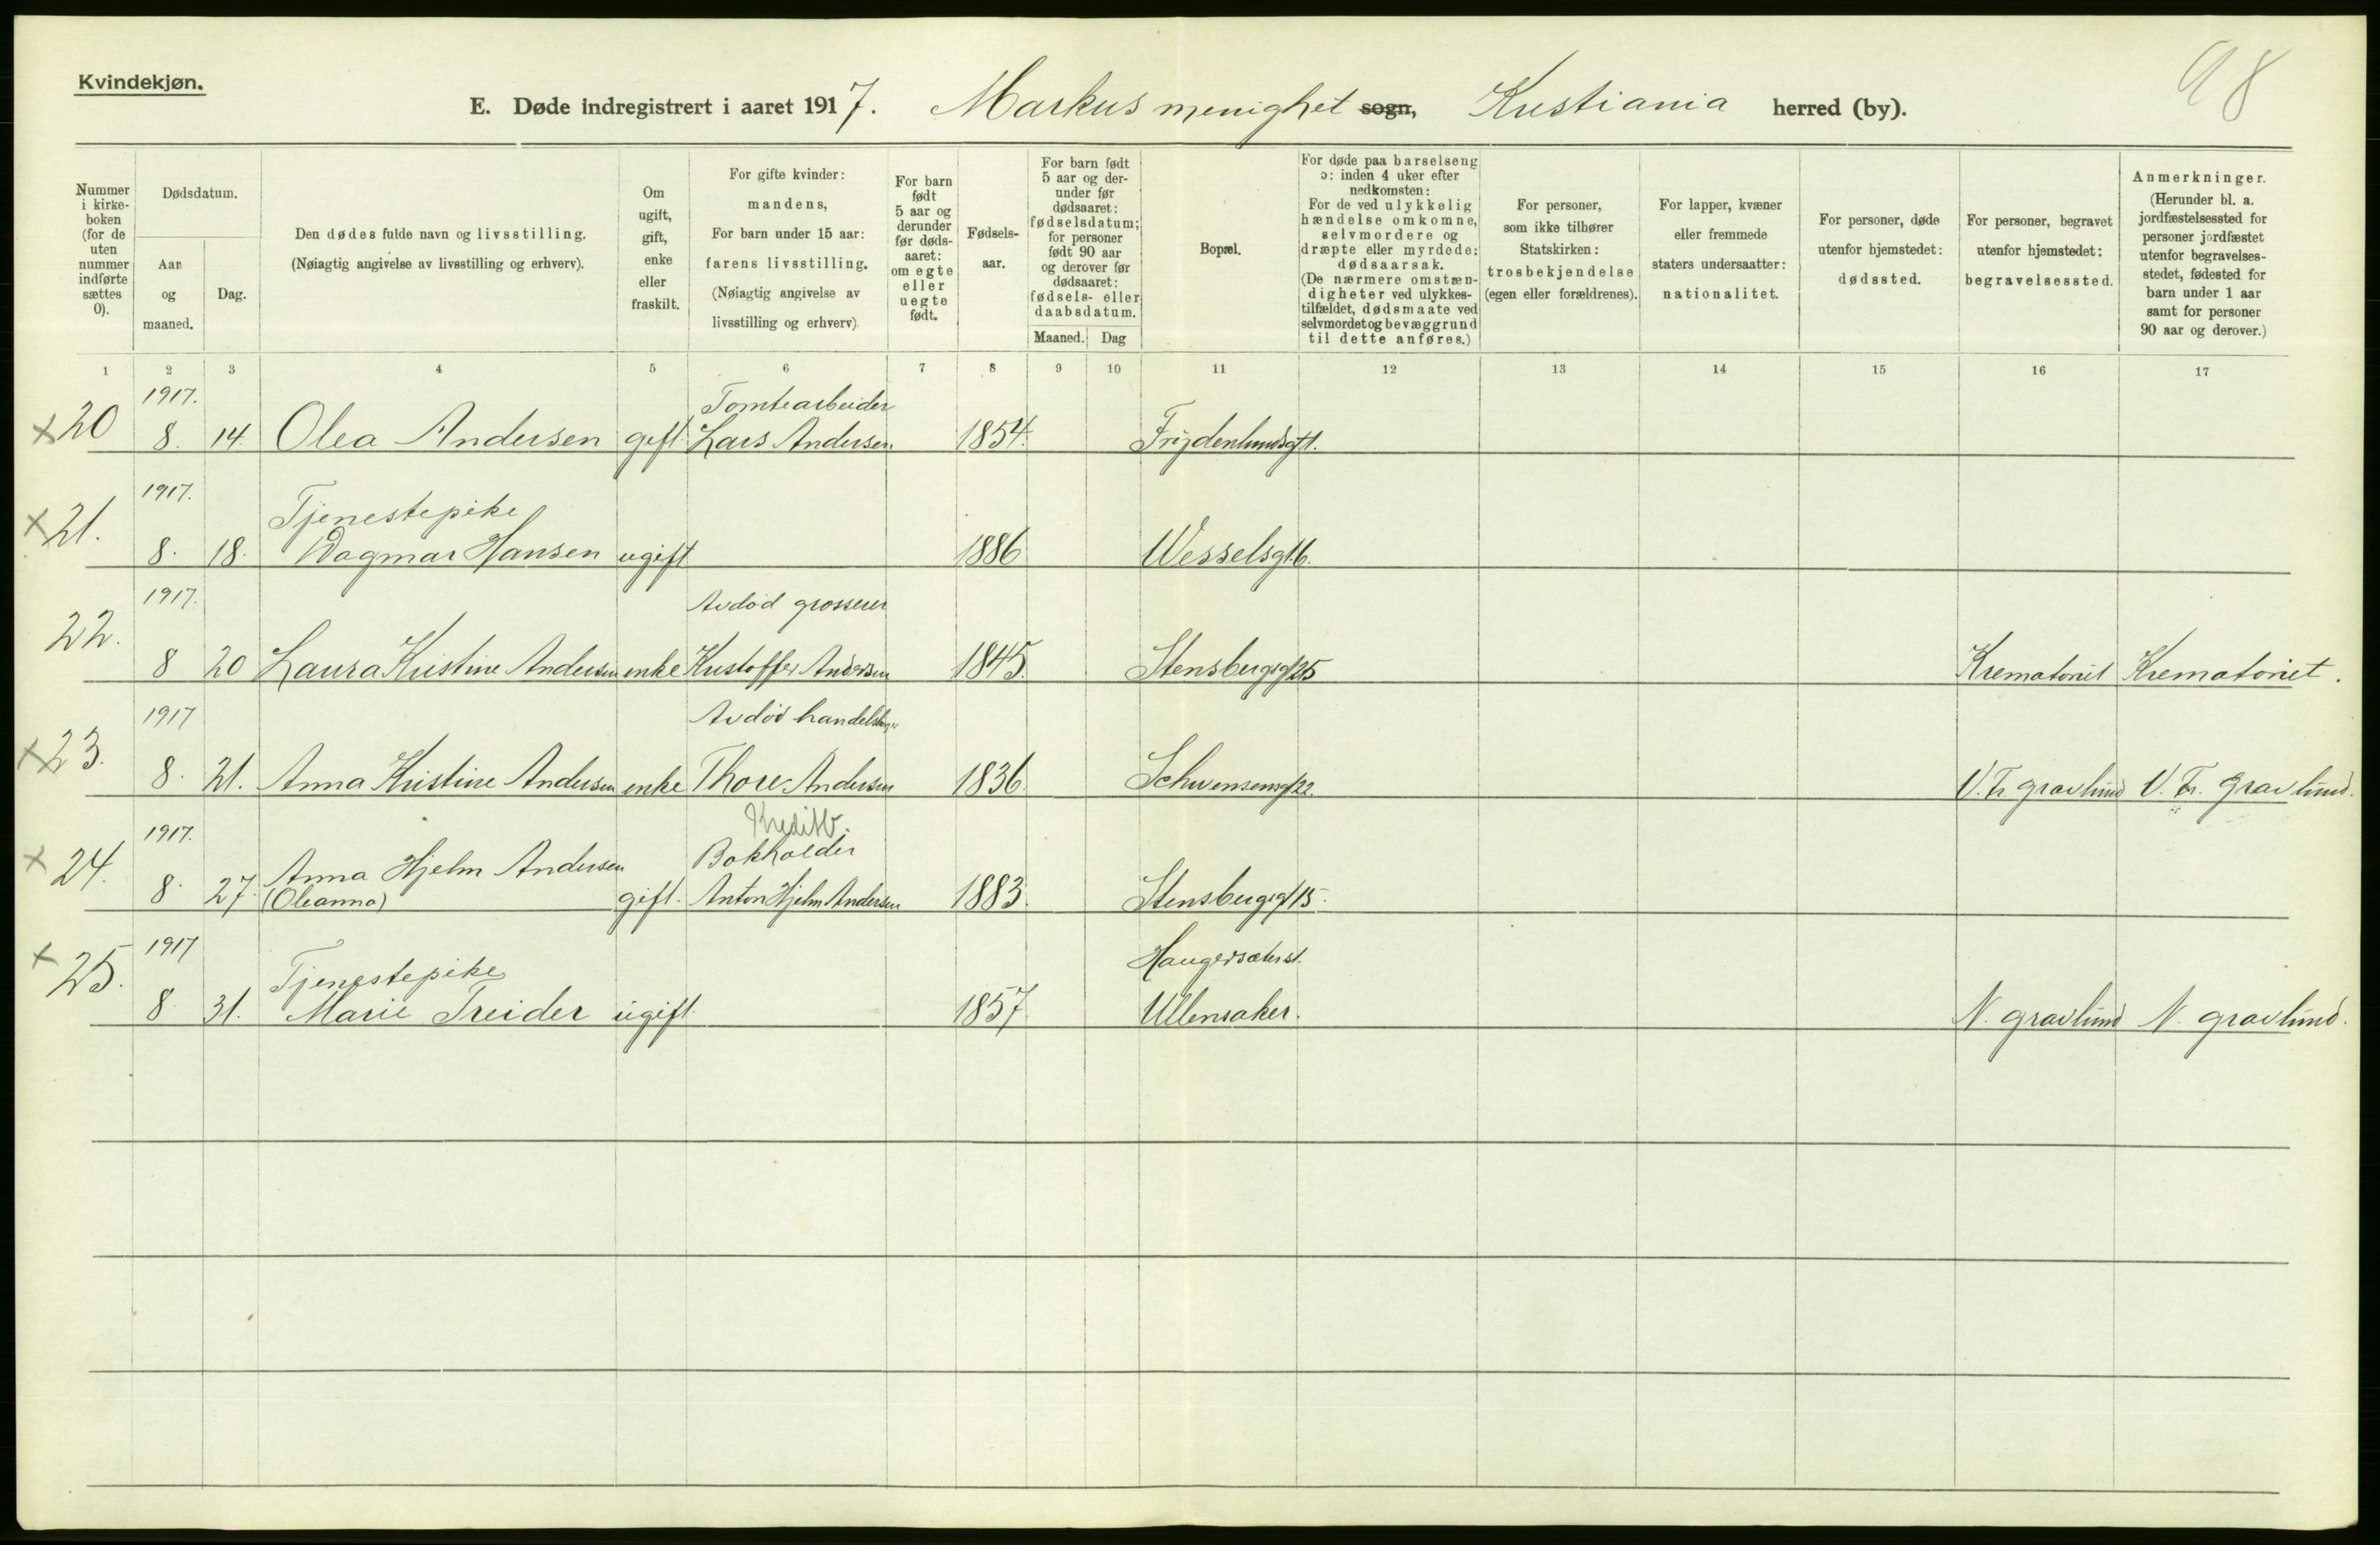 Kvindekjøn.
98
E. Døde indregistrert i aaret 1917. Markus menighet sogn, Kristiania herred (by).
Nummer i kirke-boken (for de uten nummer indførte sættes 0).
Dødsdatum.
Aar og maaned.
Dag.
Den dødes fulde navn og livsstilling.
(Nøiagtig angivelse av livsstilling og erhverv).
Om ugift, gift, enke eller fraskilt.
For gifte kvinder: mandens,
For barn under 15 aar: farens livsstilling.
(Nøiagtig angivelse av livsstilling og erhverv).
For barn født 5 aar og derunder før døds-aaret: om egte eller uegte født.
Fødsels-aar.
For barn født 5 aar og der-under før dødsaaret: fødselsdatum; for personer født 90 aar og derover før dødsaaret: fødsels- eller daabsdatum.
Maaned. Dag
Bopæl.
For døde paa barselseng ɔ: inden 4 uker efter nedkomsten:
For de ved ulykkelig hændelse omkomne, selvmordere og dræpte eller myrdede: dødsaarsak.
(De nærmere omstæn-digheter ved ulykkes-tilfældet, dødsmaate ved selvmordet og bevæggrund til dette anføres.)
For personer, som ikke tilhører Statskirken: trosbekjendelse (egen eller forældrenes).
For lapper, kvæner eller fremmede staters undersaatter: nationalitet.
For personer, døde utenfor hjemstedet: dødssted.
For personer, begravet utenfor hjemstedet: begravelsessted.
Anmerkninger.
(Herunder bl. a. jordfæstelsessted for personer jordfæstet utenfor begravelses-stedet, fødested for barn under 1 aar samt for personer 90 aar og derover.)
1 2 3 4 5 6 7 8 9 10 11 12 13 14 15 16 17
1917. Tomtearbeider
x 20 8. 14. Olea Andersen gift. Lars Andersen. 1854. Frydenlundsgt 1.
1917. Tjenestepike
x 21. 8. 18. Dagmar Hansen ugift 1886 Wesselsgt. 6.
1917. Avdød grosserer
22. 8 20 Laura Kristine Andersen enke Kristoffer Andersen 1845. Stensberggt 25 Krematoriet Krematoriet.
1917 Avdød
x 23. 8. 21. Anna Kristine Andersen enke Thore Andersen 1836. Schwensensgt 22. V. Fr gravlund V. Fr. gravlund.
Kreditb.
1917. Bokholder
x 24. Anna Hjelm Andersen
8. 27. (Oleanna) gift. Anton Hjelm Andersen 1883. Stensberggt 15.
1917 Haugersæter st.
x 25. Tjenestepike
8. 31. Marie Treider ugift. 1857. Ullensaker. N. gravlund N. gravlund.